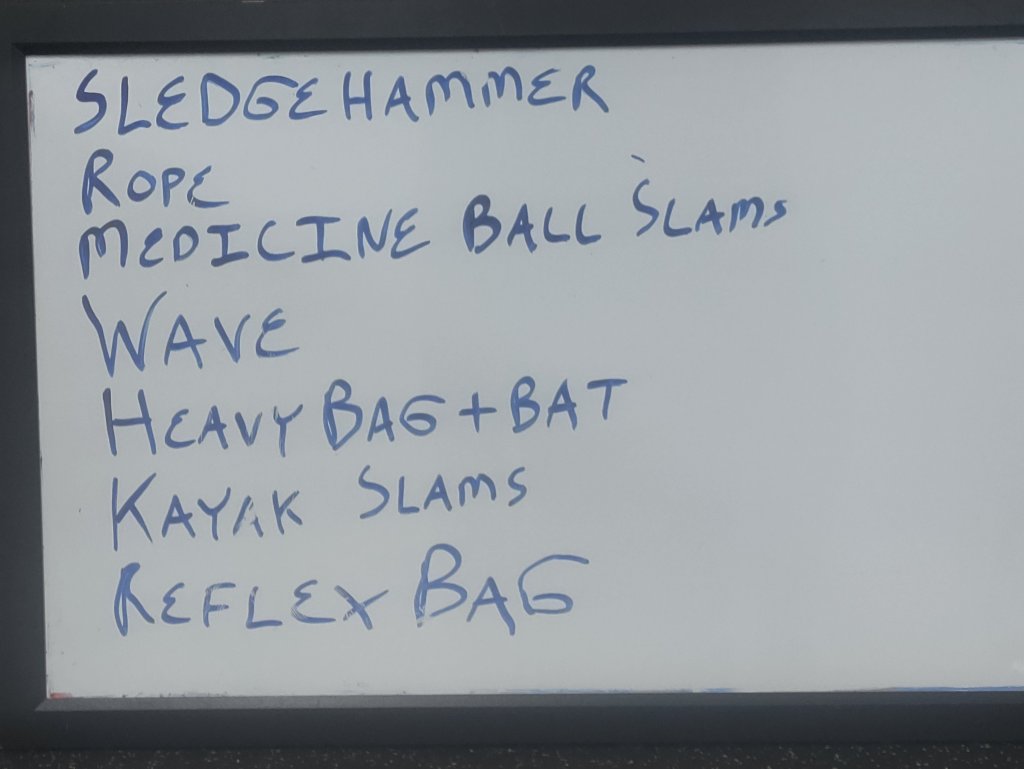 SLEDGEHAMMER
ROPE
MEDICINE BALL SLAMS
WAVE
HEAVY BAG + BAT
KAYAK SLAMS
REFLEX BAG